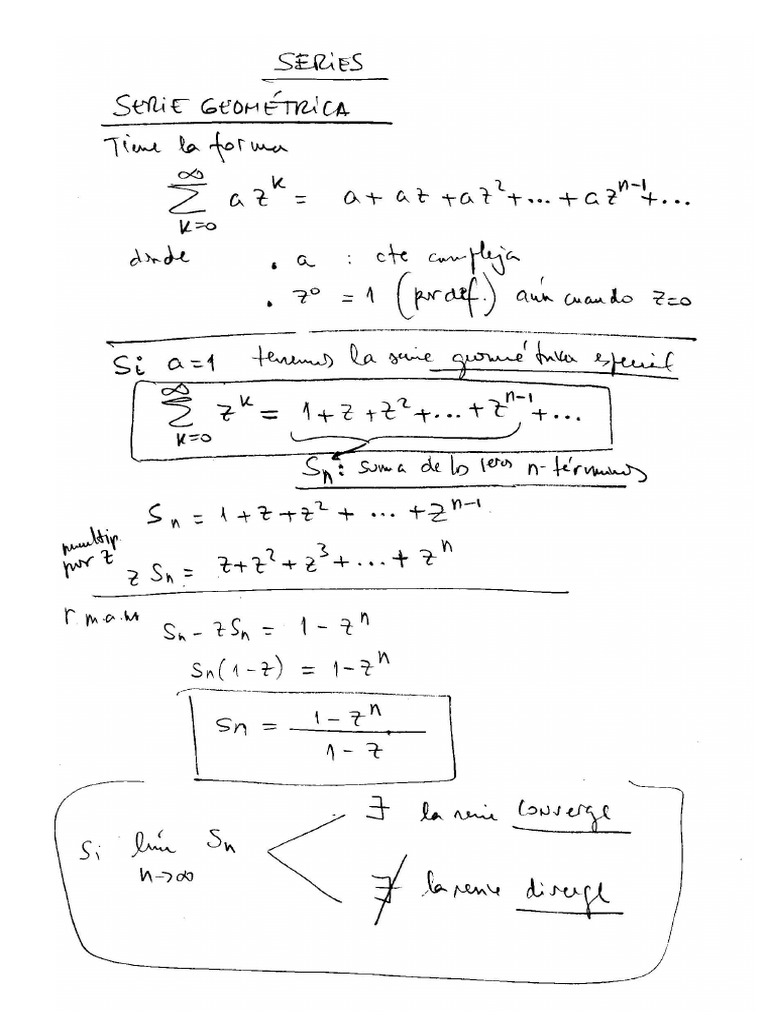 SERIES
SERIE GEOMÉTRICA
Tiene la forma
∑_{k=0}^{∞} a z^k = a + az + az² + ... + az^{n-1} + ...
donde • a : cte compleja
• z⁰ = 1 (por def.) aún cuando z=0
Si a=1 tenemos la serie geométrica especial
∑_{k=0}^{∞} z^k = 1 + z + z² + ... + z^{n-1} + ...
Sn: suma de los 1eros n-términos
Sn = 1 + z + z² + ... + z^{n-1}
multip. por z
z Sn = z + z² + z³ + ... + z^n
r.m.a.m
Sn - zSn = 1 - z^n
Sn(1-z) = 1 - z^n
Sn = (1 - z^n)/(1 - z)
Si lím_{n→∞} Sn
∃ la serie converge
∄ la serie diverge